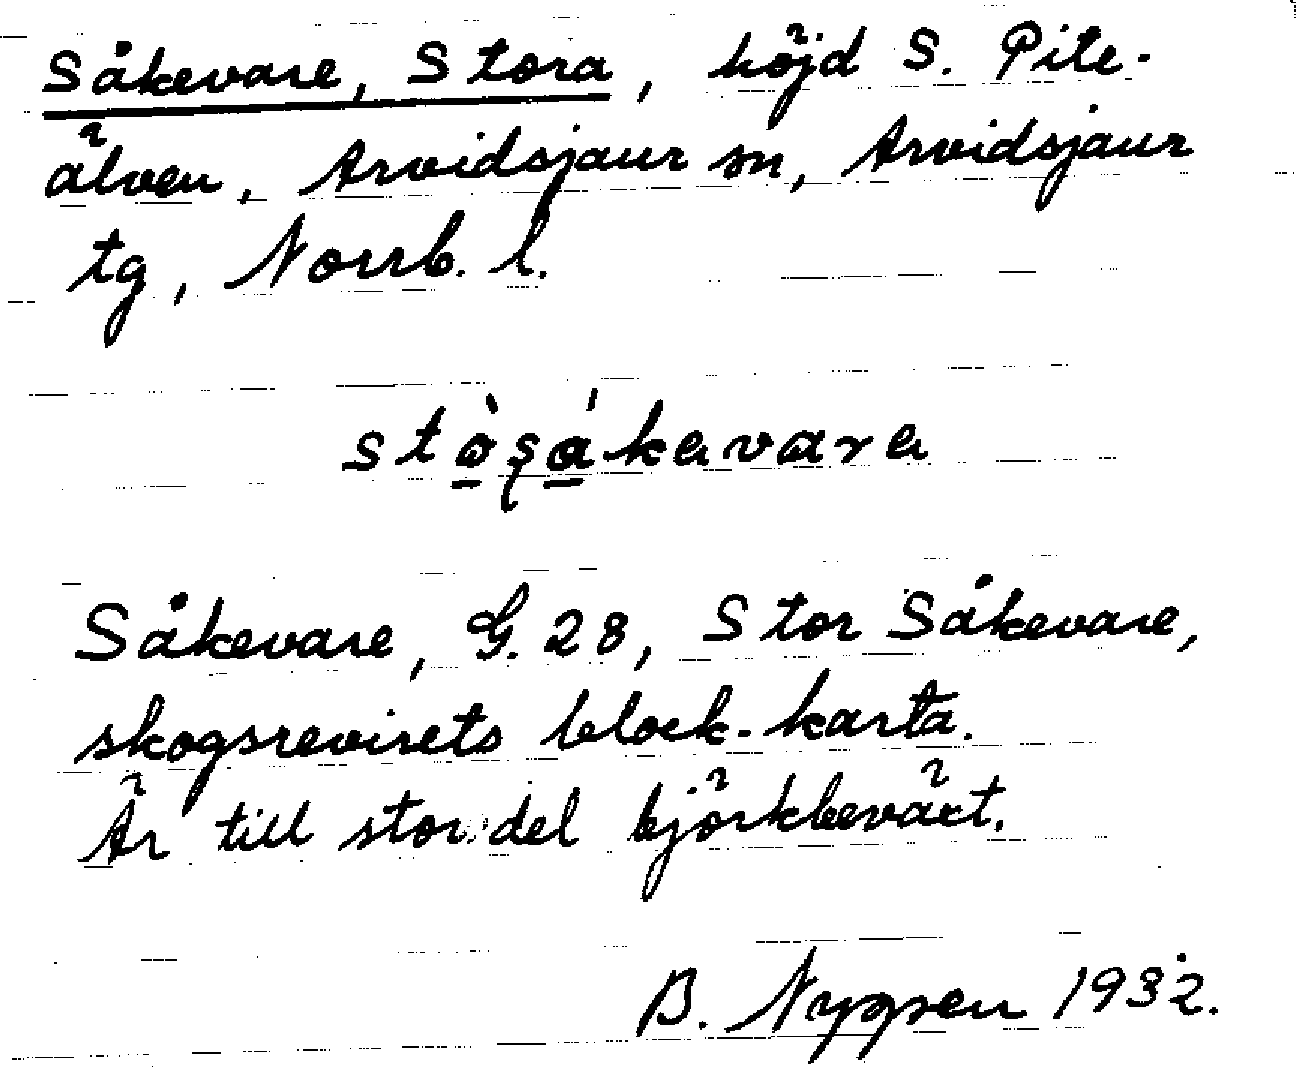 Såkevare, Stora, höjd S. Pite-
älven, Arvidsjaur sn, Arvidsjaur
tg, Norrb. l.
stò̱ʂá̱kavara
Såkevare, G. 28, Stor Såkevare,
skogsrevirets block-karta.
Är till stor del björkbeväxt.
B. Nygren 1932.